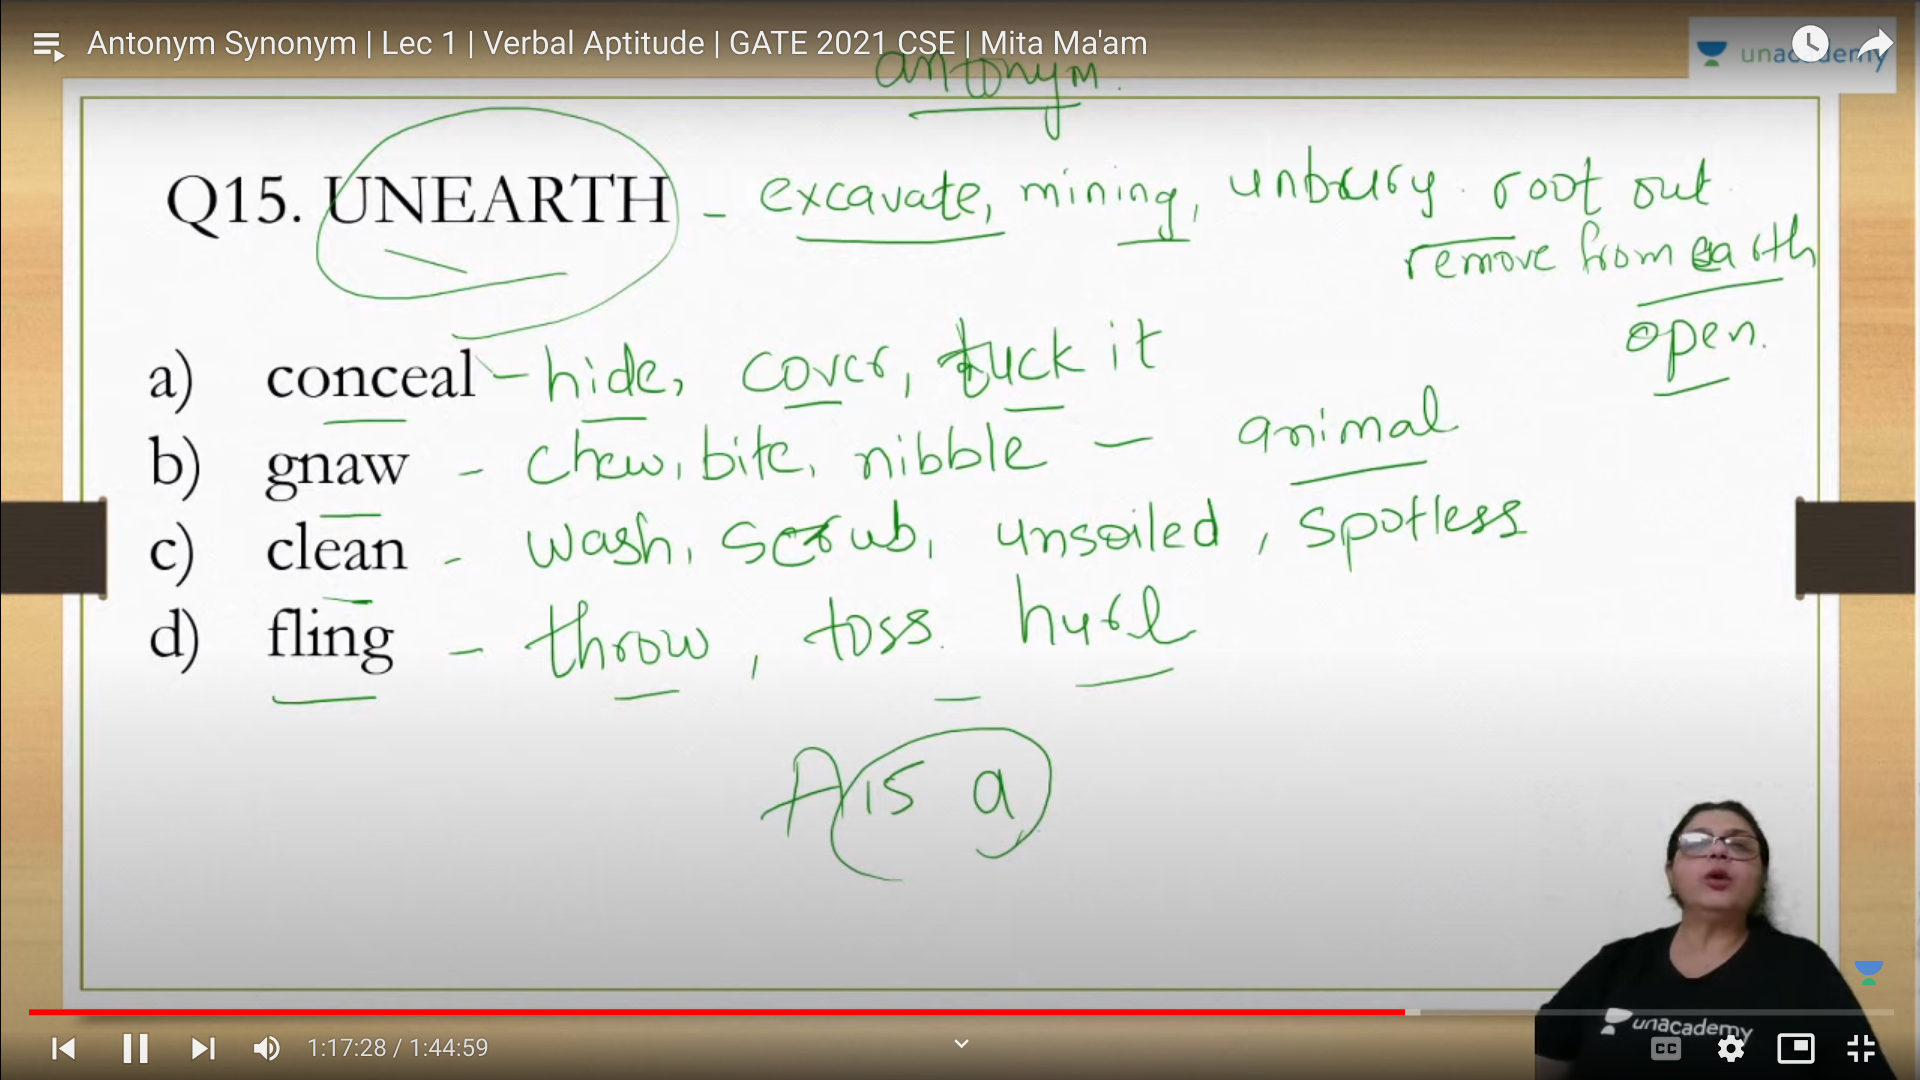 Antonym Synonym | Lec 1 | Verbal Aptitude | GATE 2021 CSE | Mita Ma'am
unacademy
antonym.
Q15. UNEARTH - excavate, mining, unbury. root out
remove from earth
open.
a) conceal - hide, cover, tuck it
b) gnaw - chew, bite, nibble - animal
c) clean - wash, scrub, unsoiled, spotless
d) fling - throw, toss. hurl
A is a
unacademy
1:17:28 / 1:44:59
CC